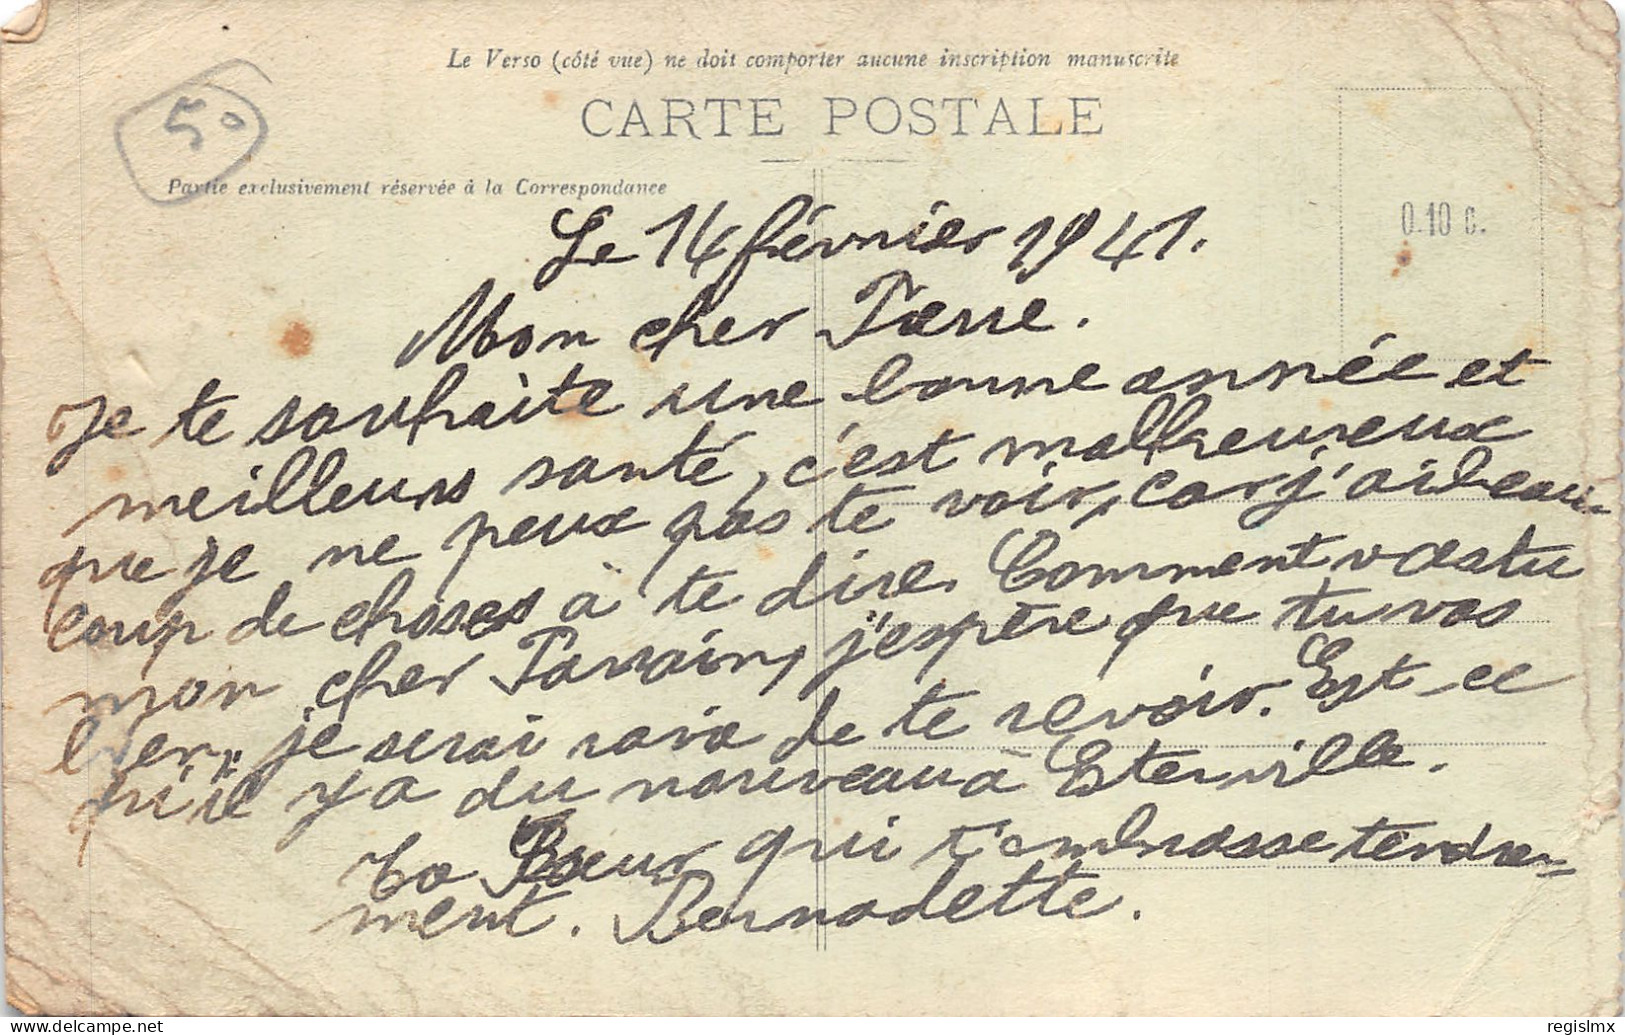 Le Verso (côté vue) ne doit comporter aucune inscription manuscrite
CARTE POSTALE
50
Partie exclusivement réservée à la Correspondance
0.10 c.
Le 14 février 1941.
Mon cher Pierre.
Je te souhaite une bonne année et
meilleurs santé, c'est malheureux
que je ne peux pas te voir, car j'ai beau-
coup de choses à te dire. Comment vas tu
mon cher Parrain, j'espère que tu vas
bien, je serai ravis de te revoir. Est-ce
qu'il y a du nouveau à Eterville.
Ta Sœur qui t'embrasse tendre-
ment. Bernadette.
delcampe.net
regislmx